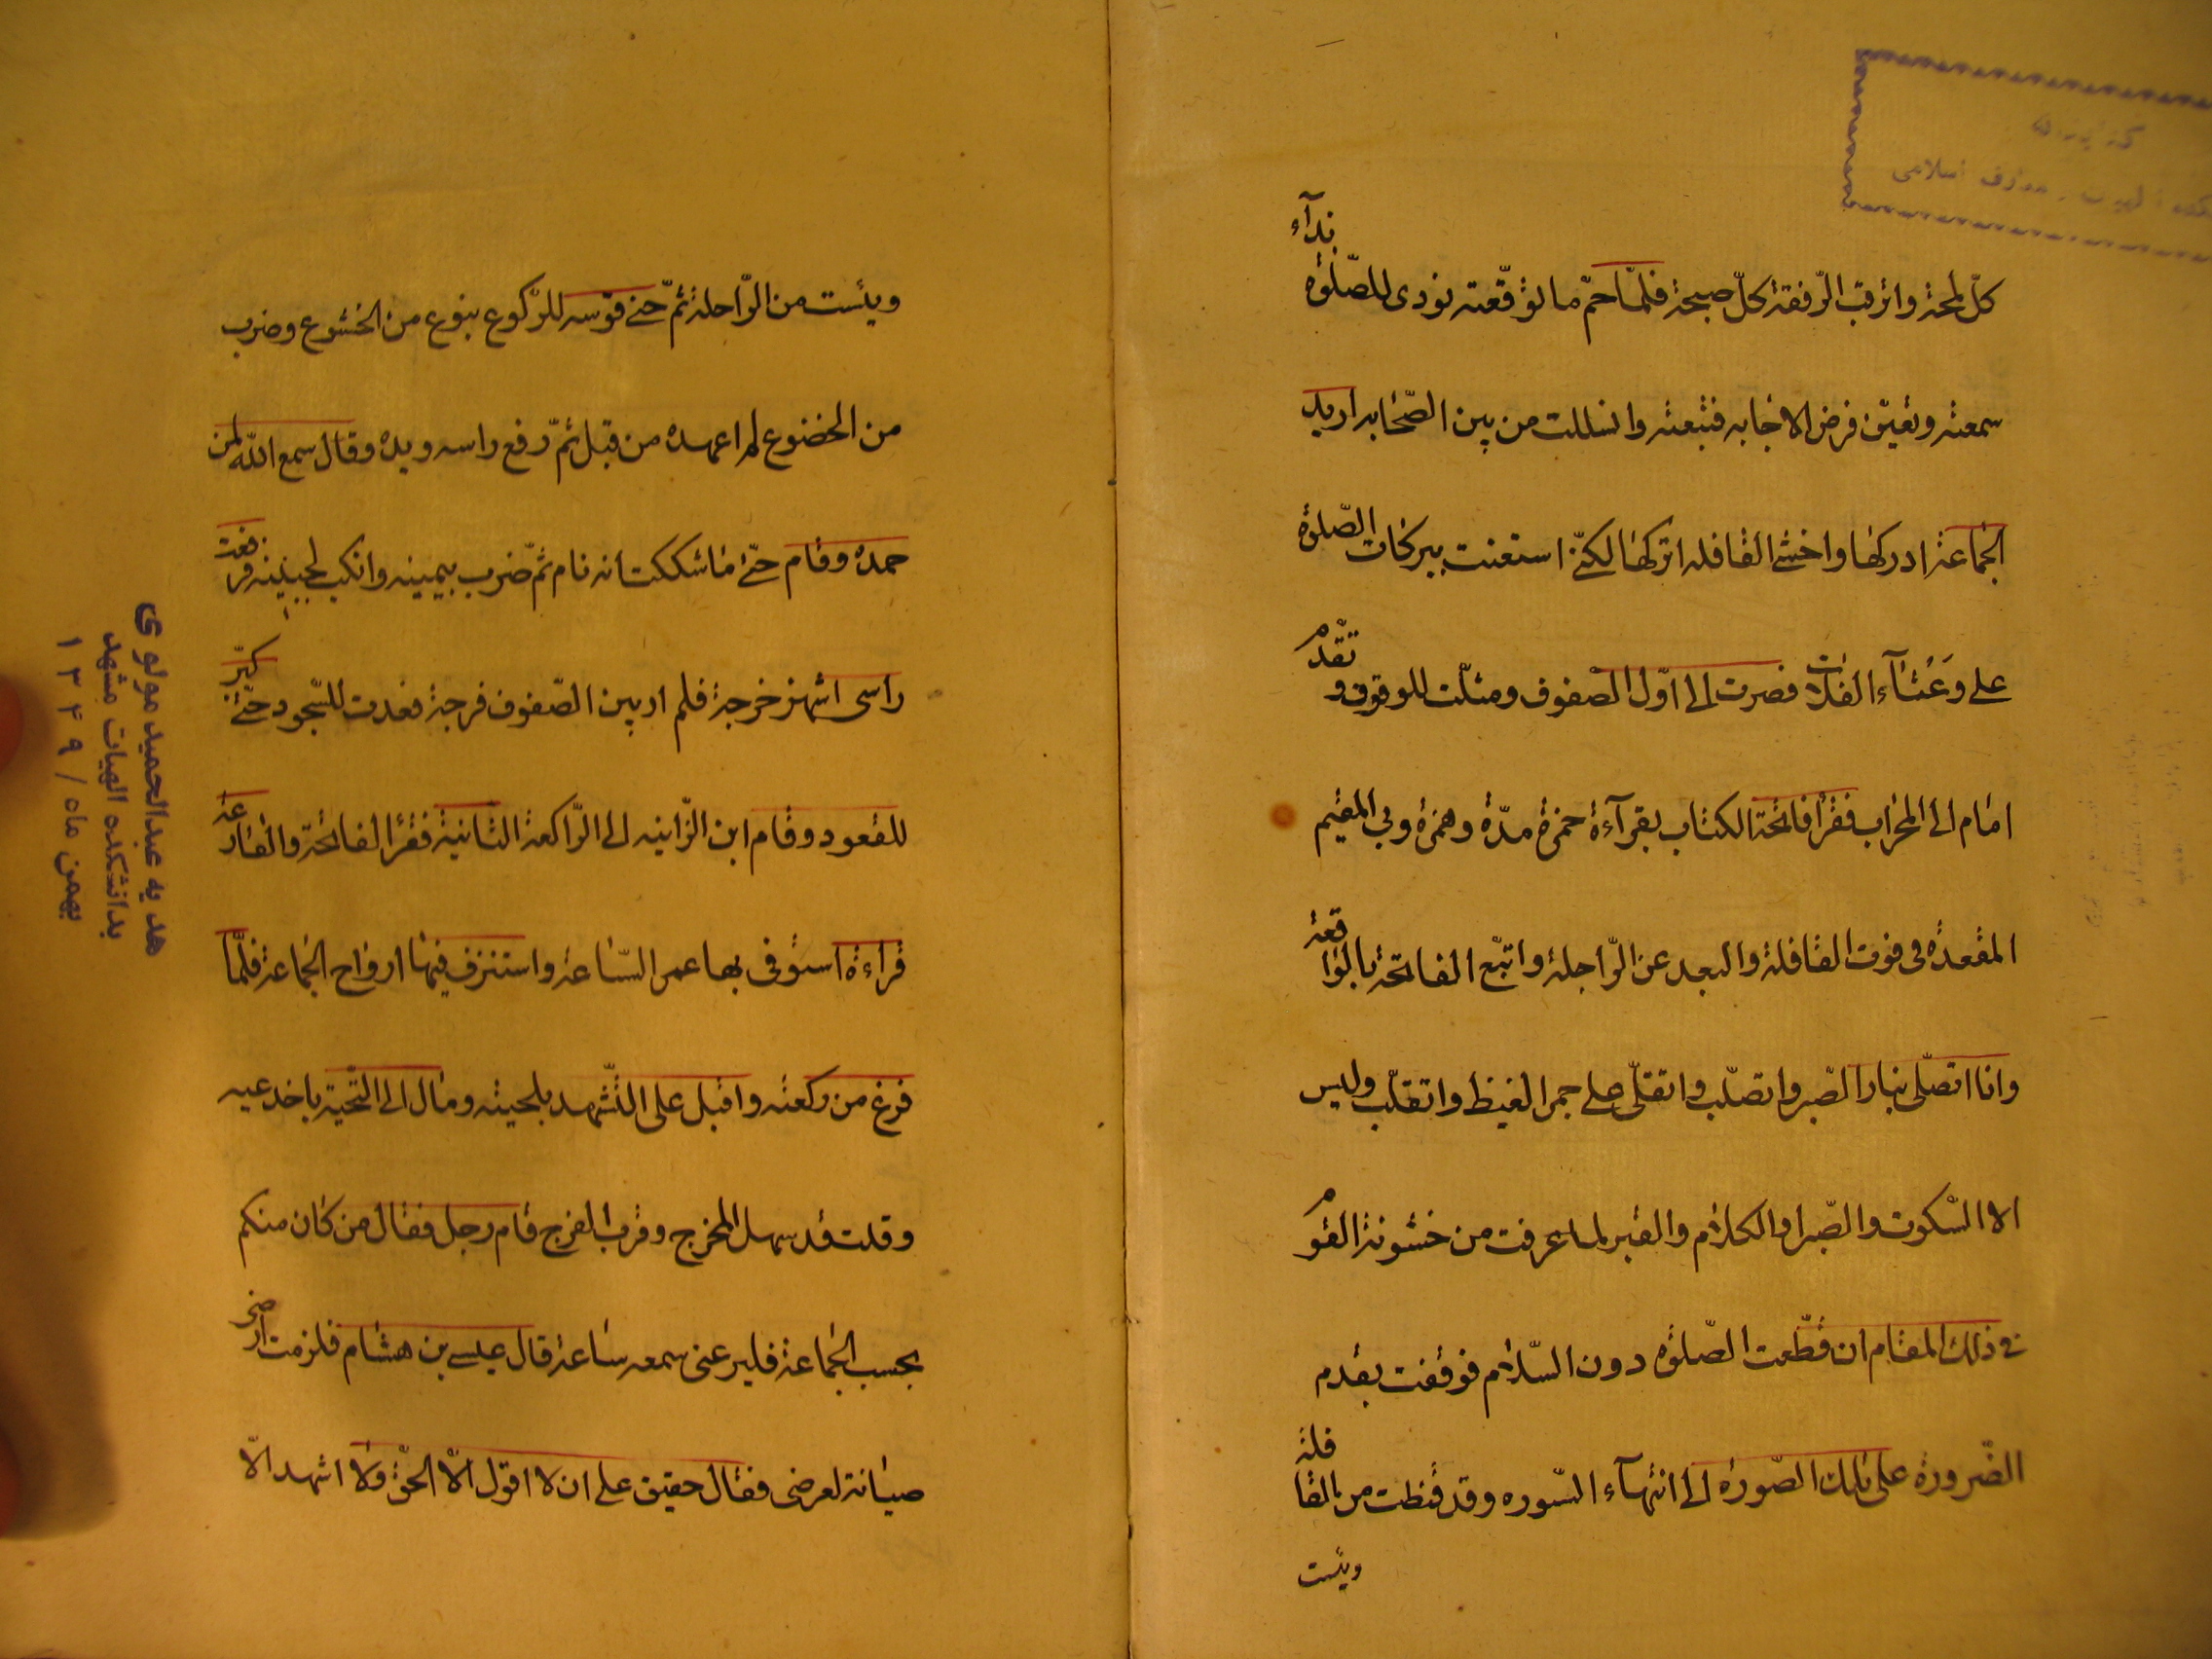 كلّ لمحة واترقب الرّفقة بكلّ صبحة فلمّا حمّ ما توقّعته نودى للصّلوة نداآء
سمعته وتعيّن فرض الاجابه فتبعته وانسللت من بين الصّحابه اريد
الجماعة ادركها واخشى القافله اتركها لكنّى استعنت ببركات الصّلوة
على وعثآء الفلاة فصرت الى اوّل الصّفوف ومثلت للوقوف و تقدّم
امام الى المحراب فقرأ فاتحة الكتاب بقرآءة حمزة مدّة وهمزة وبى المقيم
المقعدة فى فوت القافلة والبعد عن الرّاحلة واتبّع الفاتحة بالواقعة
وانا اتصلّى بنار الصّبر واتصلّب واتقلّى على جمر الغيظ واتقلّب وليس
الا السّكوت والصّبر او الكلام والقبر لما عرفت من خشونة القوم
فى ذلك المقام ان قطّعت الصّلوة دون السّلام فوقفت بقدم
الضّرورة على تلك الصّورة الى انتهآء السّوره وقد قنطت من القافلة
ويئست
ويئست من الرّاحلة ثمّ حنى قوّسه للرّكوع بنوع من الخشوع وضرب
من الخضوع لم اعهده من قبل ثمّ رفع راسه ويده وقال سمع اللّه لمن
حمده وقام حتّى ما شككت انه نام ثمّ ضرب بيمينه وانكب لجبينه فرفعت
راسى انتهز خرجة فلم ار بين الصّفوف فرجة فعدت للسّجود حتّى كبّر
للقعود وقام ابن الزّانيه الى الرّاكعة الثانية فقرأ الفاتحة والقارعة
قراءة استوفى بها عمر السّاعة واستنزف فيها ارواح الجماعة فلمّا
فرغ من ركعته واقبل على التّشهد بلحيته ومال الى التّحية باخدعيه
وقلت قد سهل المخرج وقرب الفرج قام رجل فقال من كان منكم
بحسب الجماعة فليرعنى سمعه ساعة قال عيسى بن هشام فلزمت ارضى
صيانة لعرضى فقال حقيق على ان لا اقول الّا الحقّ ولا اشهد الّا
هديه عبدالحميد مولوى
بدانشكده الهيات مشهد
بهمن ماه / ۱۳۴۹
معارف اسلامى